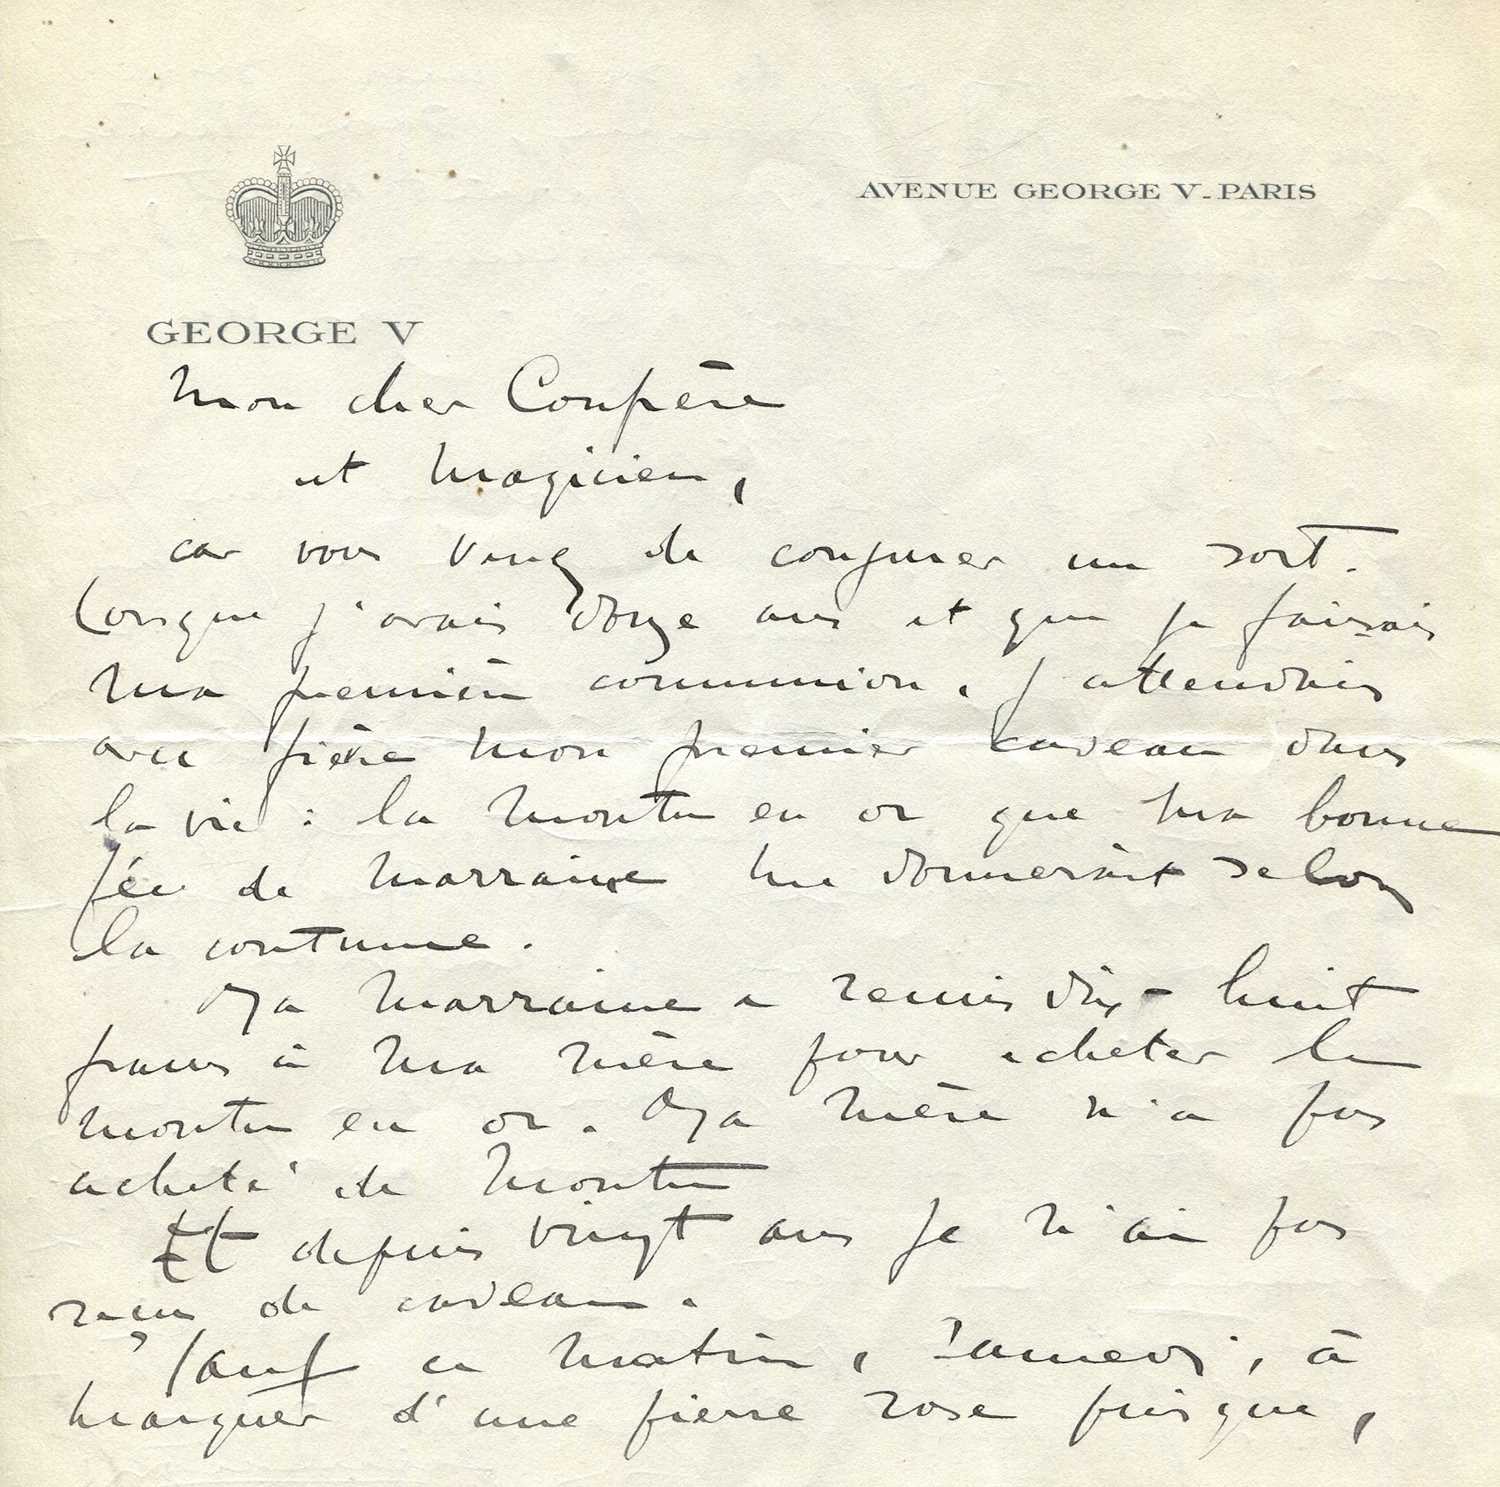 AVENUE GEORGE V-PARIS
GEORGE V
Mon cher Confrère
et magicien,
car vous venez de conjurer un sort.
Lorsque j'avais onze ans et que je faisais
ma première communion, j'attendais
avec fièvre mon premier cadeau dans
la vie : la montre en or que ma bonne
fée de marraine me donnerait selon
la coutume.
Ma marraine a remis dix-huit
francs à ma mère pour acheter la
montre en or. Ma mère n'a pas
acheté de montre
Et depuis vingt ans je n'ai pas
reçu de cadeau.
Sauf ce matin, samedi, à
marquer d'une pierre rose puisque,